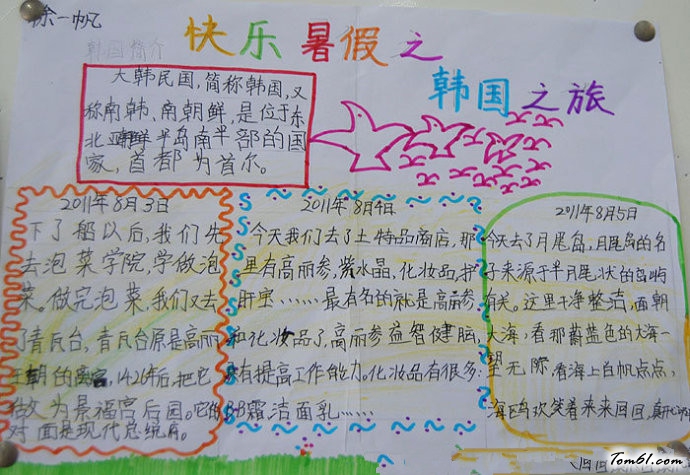 徐一帆
快乐暑假之
韩国之旅
韩国简介
大韩民国,简称韩国,又
称南韩、南朝鲜,是位于东
北亚朝鲜半岛南半部的国
家,首都为首尔。
2011年8月3日
下了船以后,我们先
去泡菜学院,学做泡
菜。做完泡菜,我们又去
了青瓦台,青瓦台原是高丽
王朝的离宫,1426年后,把它
做为景福宫后园。它的
对面是现代总统府。
2011年8月4日
今天我们去了土特品商店,那
里有高丽参,紫水晶,化妆品,护
肝宝……最有名的就是高丽参
和化妆品了,高丽参益智健脑,
有提高工作能力。化妆品有很多:
BB霜洁面乳……
2011年8月5日
今天去了月尾岛,月尾岛的名
子来源于半月尾状的岛屿
有关。这里干净整洁,面朝
大海,看那蔚蓝色的大海一
望无际,看海上白帆点点,
海鸥欢笑着来来回回,真
Tom61.com